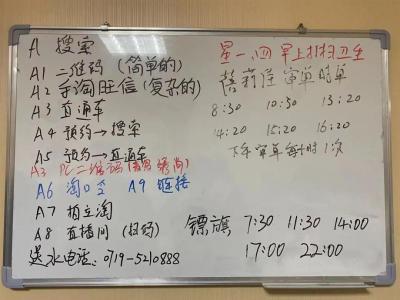 A 搜索
A1 二维码 (简单的)
A2 手淘旺信 (复杂的)
A3 直通车
A4 预约→搜索
A5 预约→直通车
A3 PC二维码
A6 淘口令 A9 链接
A7 拍立淘
A8 直播间 (扫码)
送水电话: 0719-5210888
星一、四 早上打扫卫生
审单时单
8:30 10:30 13:20
14:20 15:20 16:20
下午审单每小时1次
镖旗 7:30 11:30 14:00
17:00 22:00